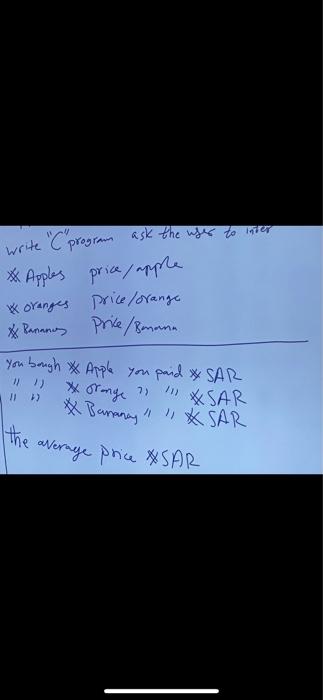 write "C" program ask the user to inter
※ Apples price/apple
※ oranges price/orange
※ Bananas Price/Banana
You bough ※ Apple you paid ※ SAR
" " ※ orange " " ※ SAR
" " ※ Bananas " " ※ SAR
the average price ※ SAR